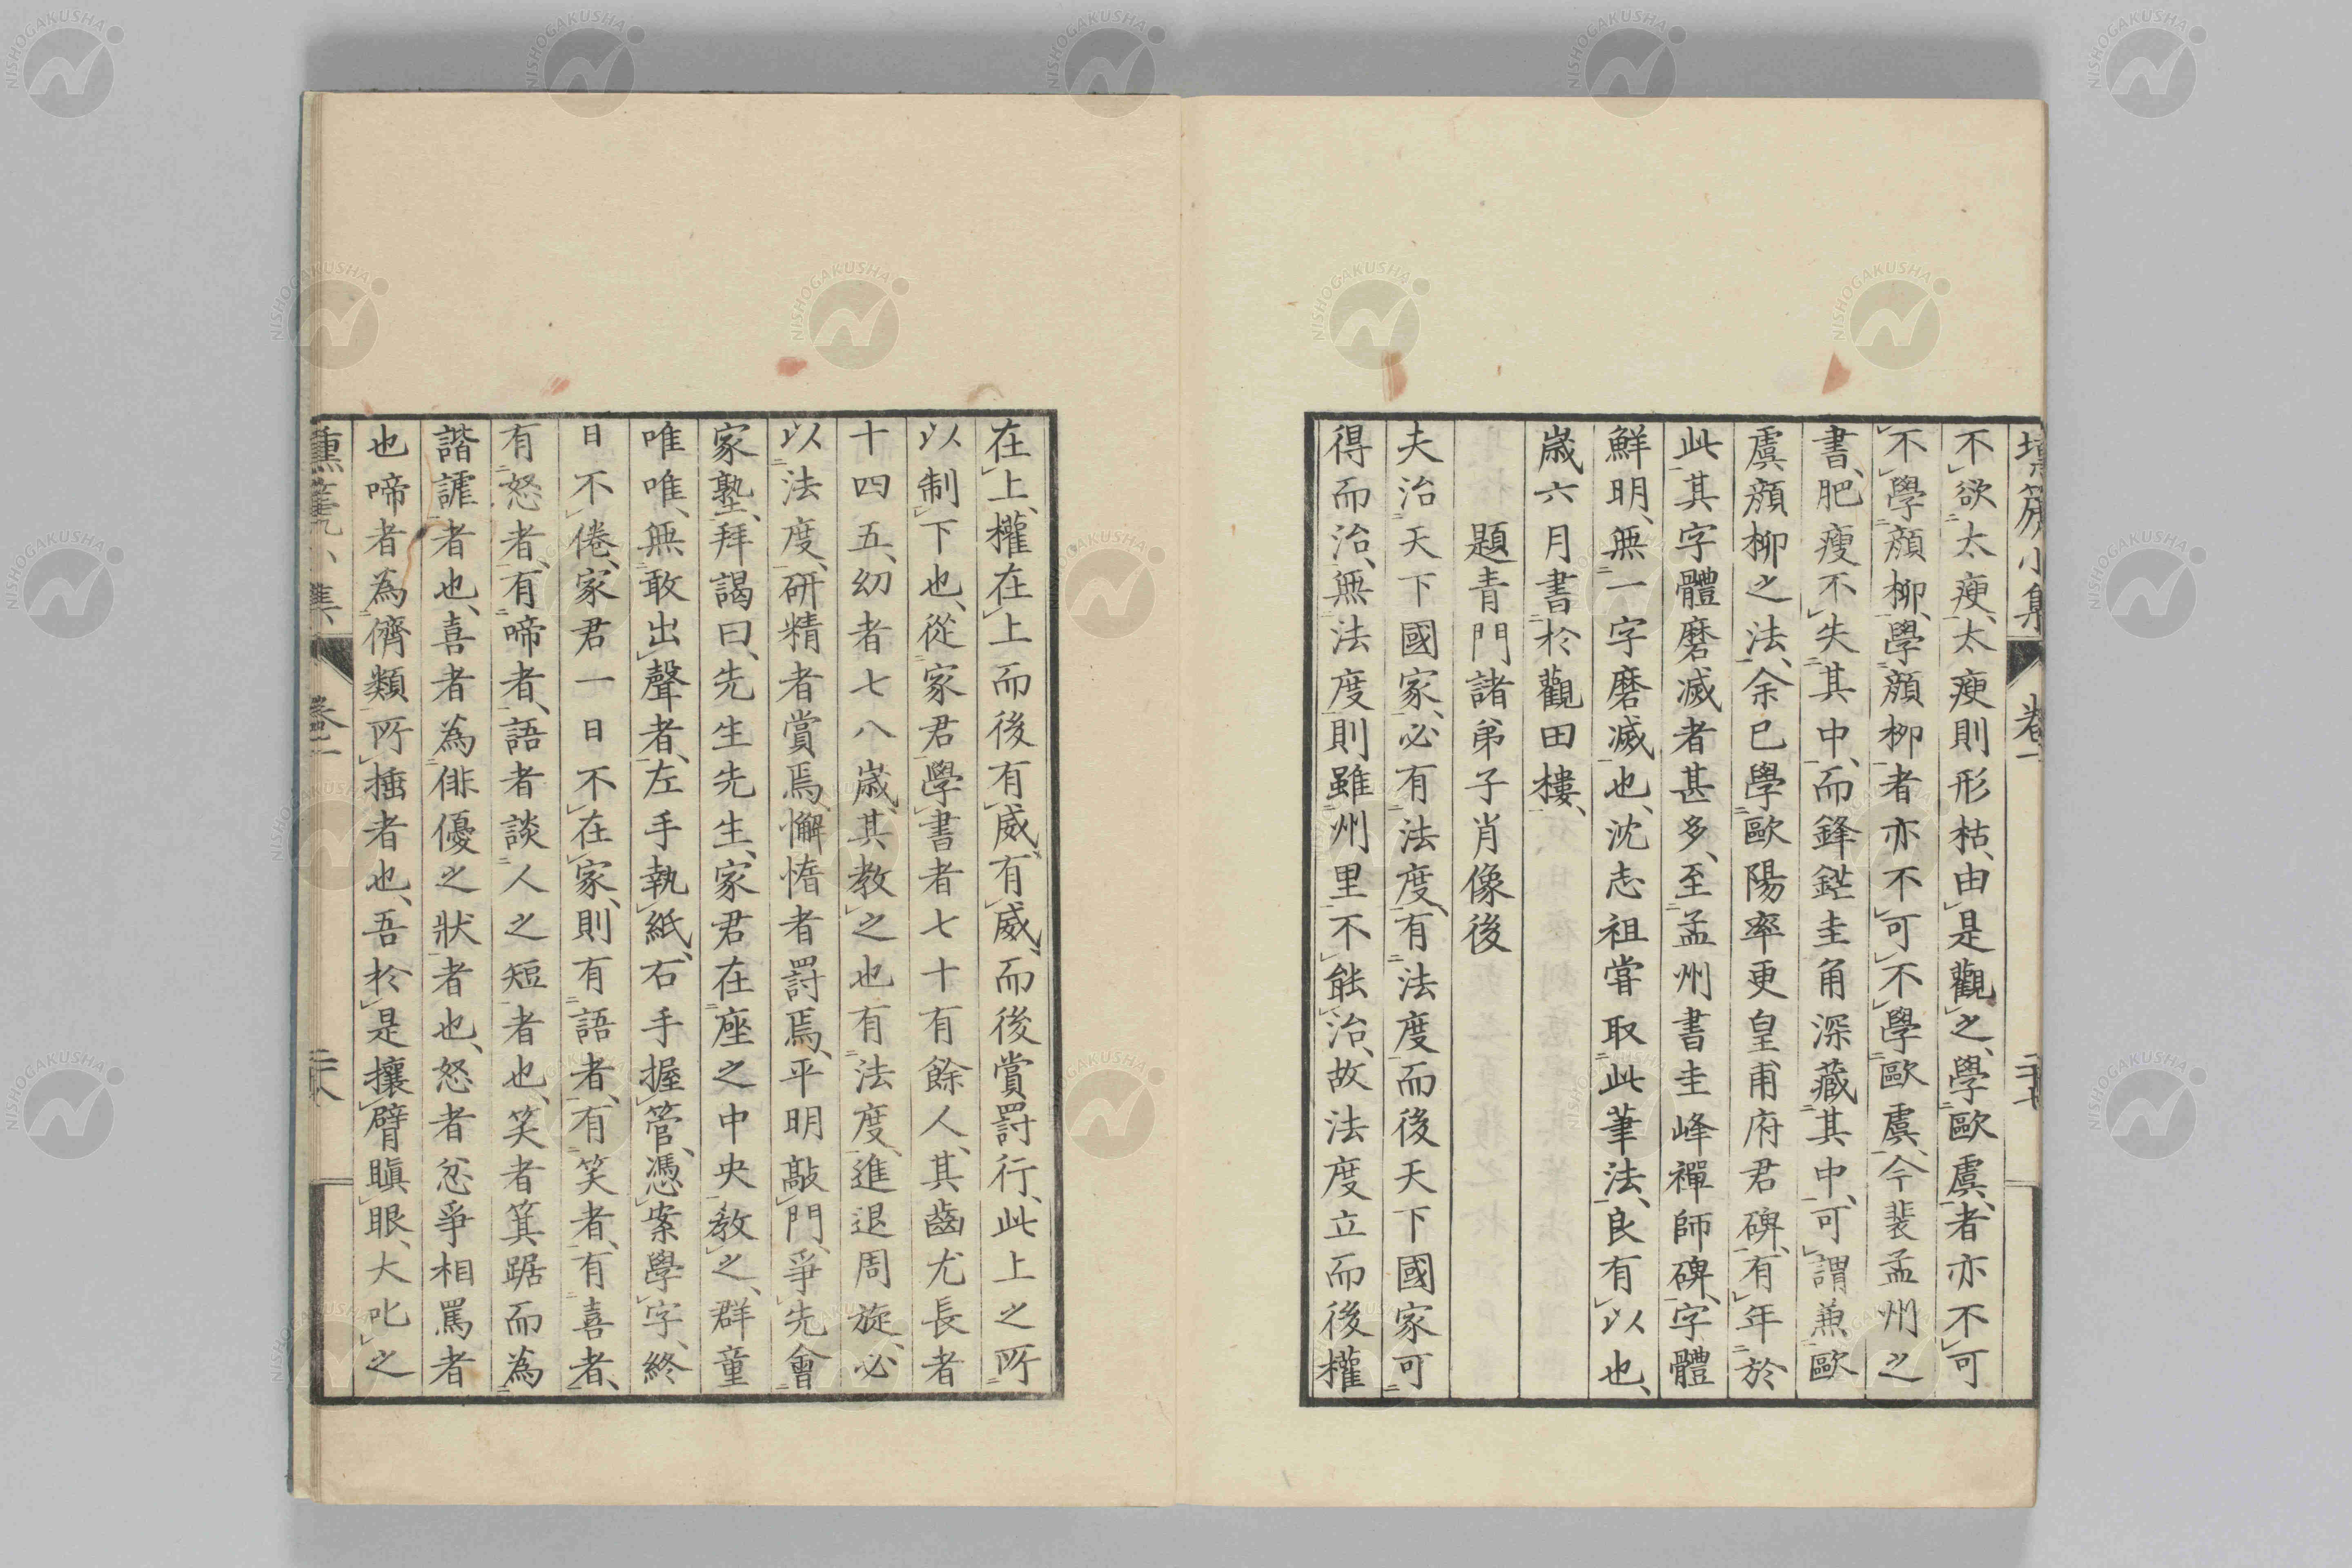 塤篪小集 卷一 二十七
不欲太瘦、太瘦則形枯、由是觀之、學歐虞者亦不可
不學顏柳、學顏柳者亦不可不學歐虞、今裴孟州之
書、肥瘦不失其中、而鋒鋩圭角深藏其中、可謂兼歐
虞顏柳之法、余已學歐陽率更皇甫府君碑、有年於
此、其字體磨滅者甚多、至孟州書圭峰禪師碑、字體
鮮明、無一字磨滅也、沈志祖嘗取此筆法、良有以也、
歲六月書於觀田樓、
題青門諸弟子肖像後
夫治天下國家、必有法度、有法度而後天下國家可
得而治、無法度則雖州里不能治、故法度立而後權
在上、權在上而後有威、有威、而後賞罰行、此上之所
以制下也、從家君學書者七十有餘人、其齒尤長者
十四五、幼者七八歲、其教之也有法度、進退周旋、必
以法度、研精者賞焉、懈惰者罰焉、平明敲門、爭先會
家塾、拜謁曰、先生先生、家君在座之中央教之、群童
唯唯、無敢出聲者、左手執紙、右手握管、憑案學字、終
日不倦、家君一日不在家、則有語者、有笑者、有喜者、
有怒者、有啼者、語者談人之短者也、笑者箕踞而為
諧謔者也、喜者為俳優之狀者也、怒者忿爭相罵者
也啼者為儕類所捶者也、吾於是攘臂瞋眼、大叱之
塤篪小集 卷一 二十八
NISHOGAKUSHA